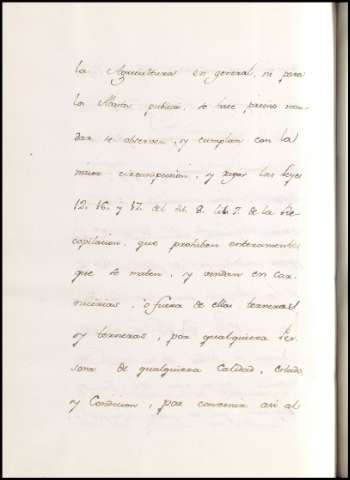 la Agricultura en general, ni para
la Abasto publico, se hace preciso man-
dar se observen, y cumplan con la
mior circumspeccion, y rigor las Leyes
12. 16. y 17. del tit. 8. lib. 7. de la Re-
copilacion, que prohiben enteramente
que se maten, y vendan en car-
nicerias, ò fuera de ellas terneras
y terneras, por qualquiera Per-
sona de qualquiera Calidad, estado
y Condicion, por convenir asi al